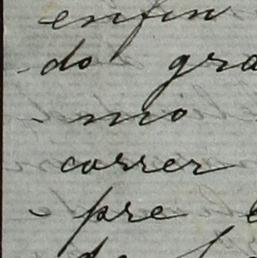 enfin
do gra
mio
correr
pre